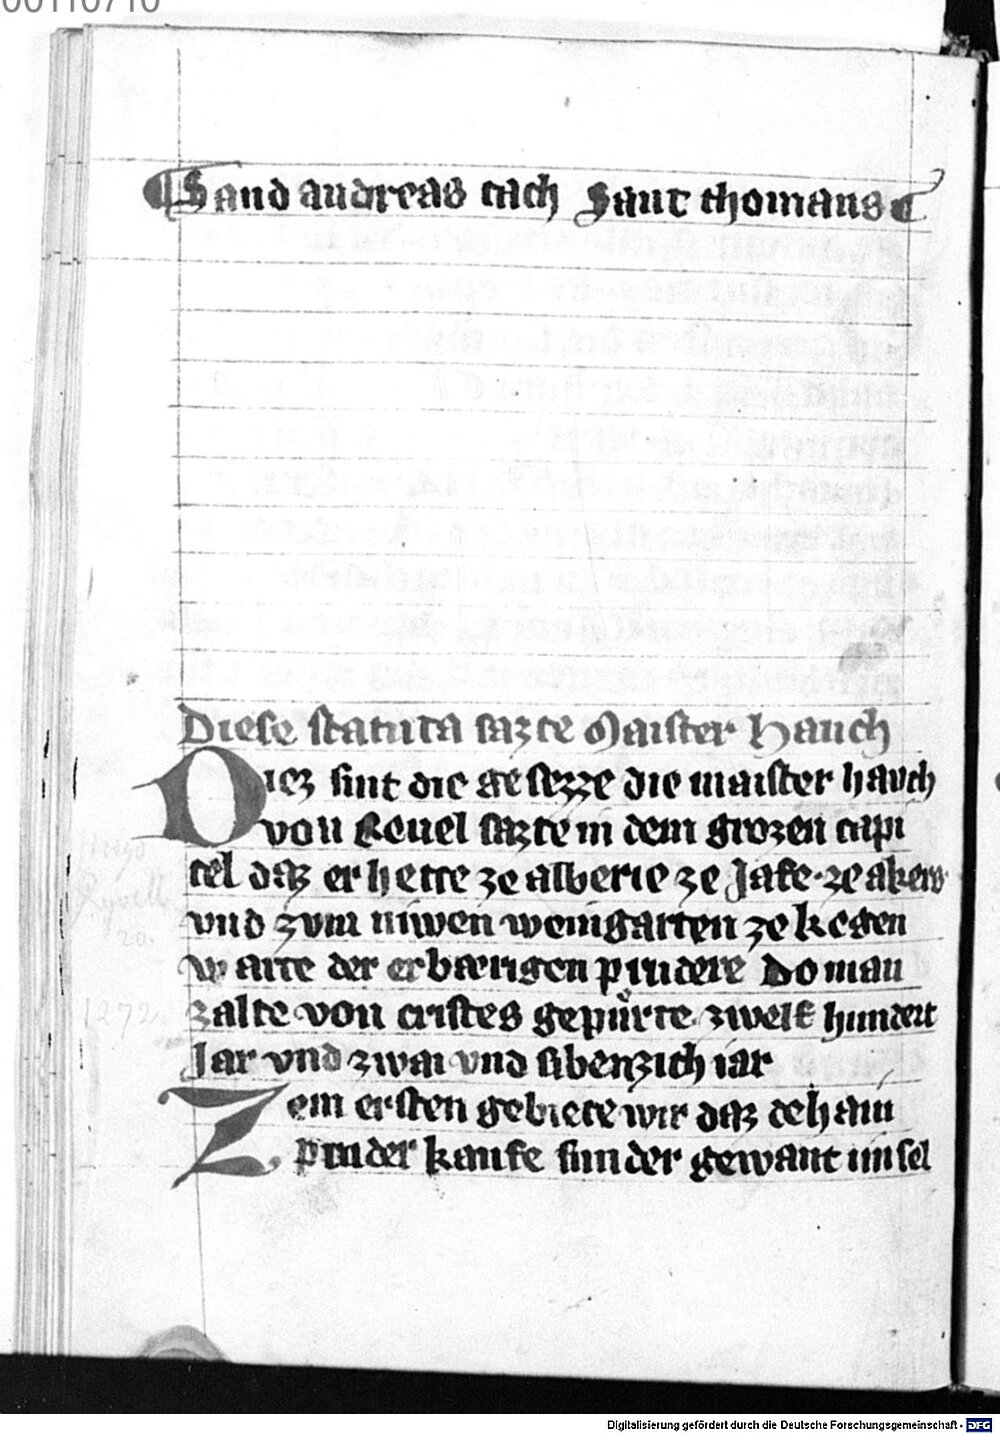 00110710
¶ Sand andreas tach Sant thomans
Diese statuta sazte Maister Hauch
Diez sint die gesezze die maister hauch
von Reuel sazte in dem grozen capi
tel daz er hette ze alberie ze Jafe · ze akers
vnd zvm niwen weingarten ze kegen
wærte der erbærigen prudere Do man
zalte von cristes gepůrte zwelf hundert
Jar vnd zwai vnd sibenzich iar
Zem ersten gebiete wir daz dehain
pruder kaufe sunder gewant umsel
Hugo
Revell
20.
1272
Digitalisierung gefördert durch die Deutsche Forschungsgemeinschaft - DFG